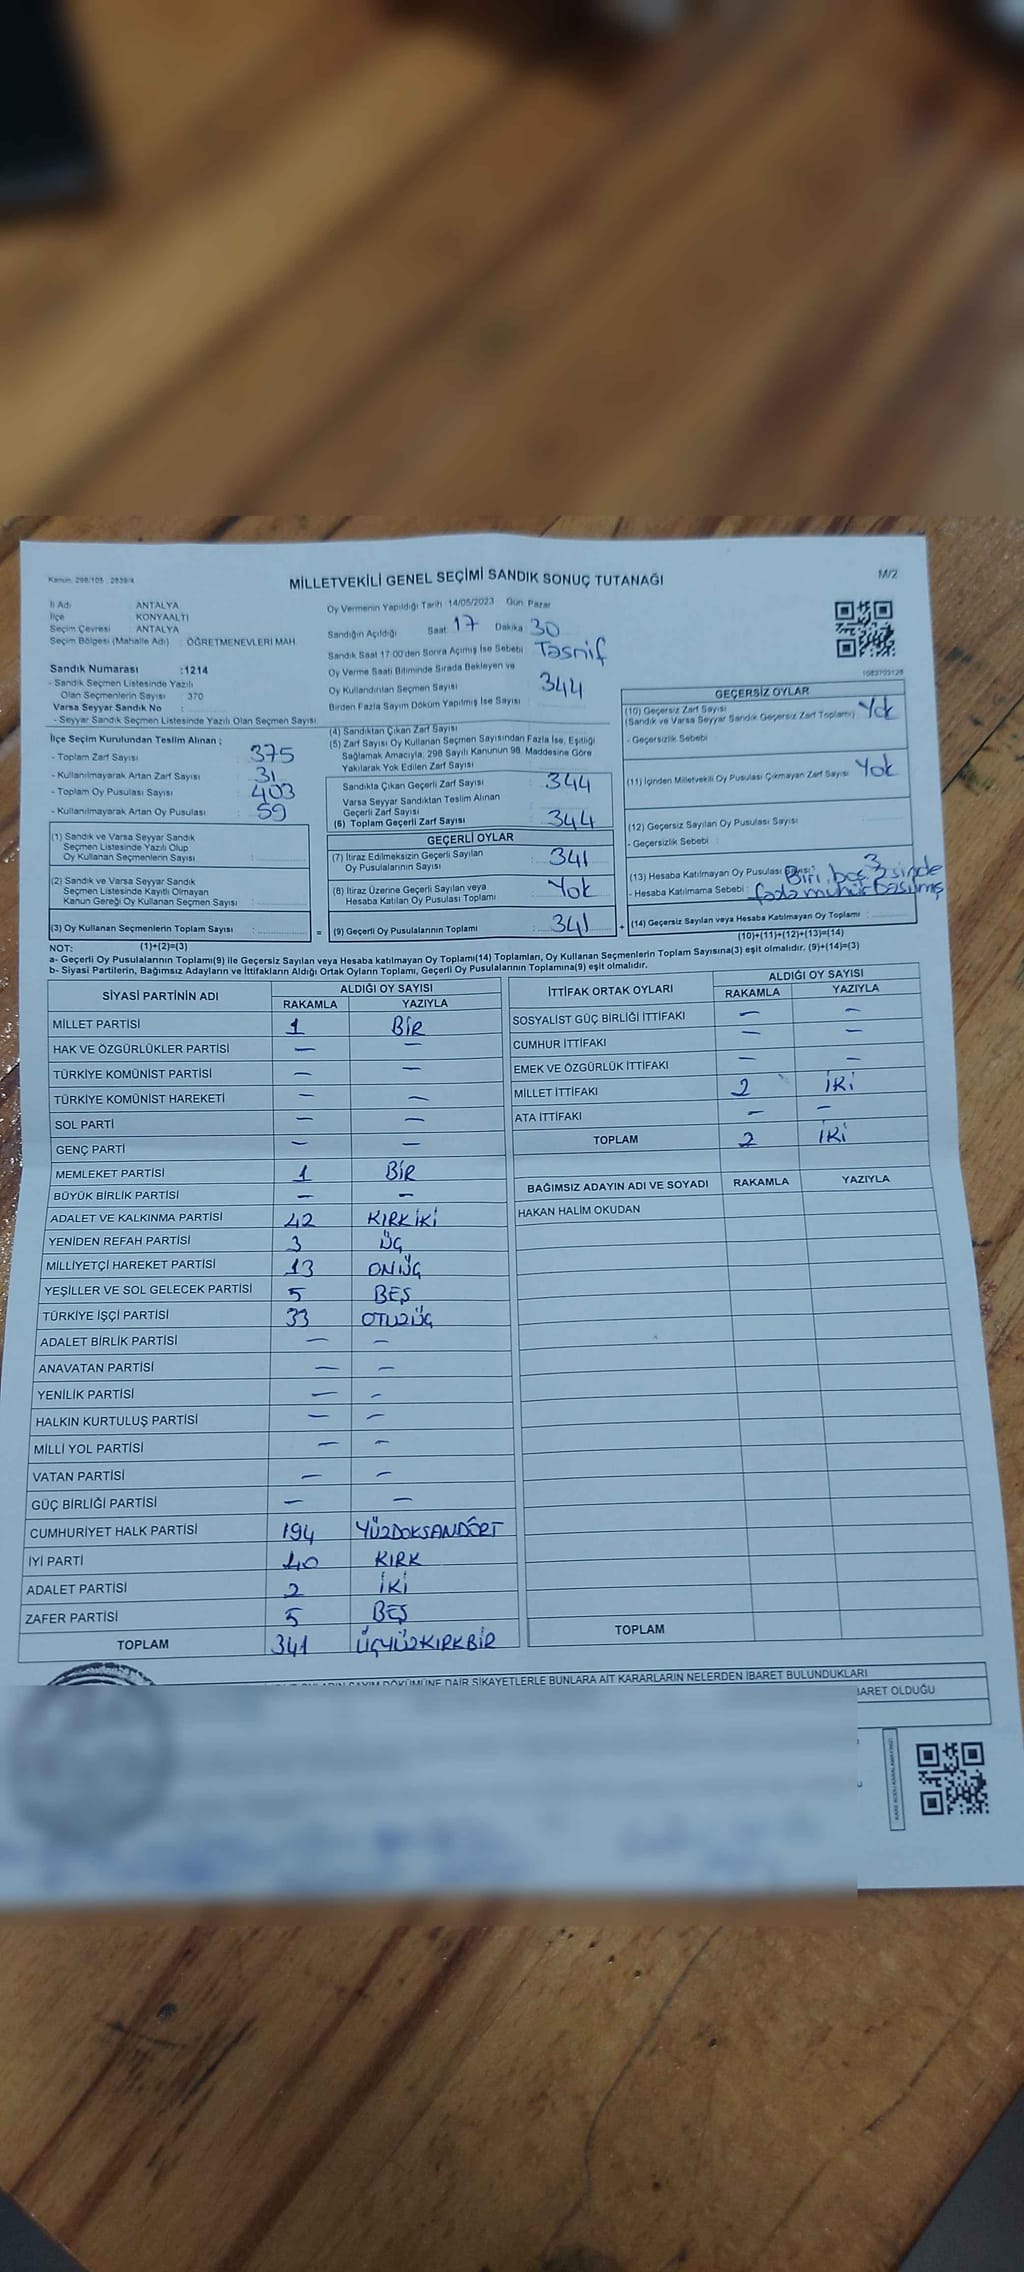 Kanun: 298/105 , 2839/4
MİLLETVEKİLİ GENEL SEÇİMİ SANDIK SONUÇ TUTANAĞI
M/2
İl Adı ANTALYA
İlçe KONYAALTI
Seçim Çevresi : ANTALYA
Seçim Bölgesi (Mahalle Adı) : ÖĞRETMENEVLERİ MAH.
Sandık Numarası :1214
- Sandık Seçmen Listesinde Yazılı
Olan Seçmenlerin Sayısı 370
Varsa Seyyar Sandık No :
- Seyyar Sandık Seçmen Listesinde Yazılı Olan Seçmen Sayısı
İlçe Seçim Kurulundan Teslim Alınan ;
- Toplam Zarf Sayısı : 375
- Kullanılmayarak Artan Zarf Sayısı : 31
- Toplam Oy Pusulası Sayısı : 403
- Kullanılmayarak Artan Oy Pusulası : 59
(1) Sandık ve Varsa Seyyar Sandık
Seçmen Listesinde Yazılı Olup
Oy Kullanan Seçmenlerin Sayısı :
(2) Sandık ve Varsa Seyyar Sandık
Seçmen Listesinde Kayıtlı Olmayan
Kanun Gereği Oy Kullanan Seçmen Sayısı :
(3) Oy Kullanan Seçmenlerin Toplam Sayısı :
Oy Vermenin Yapıldığı Tarih :14/05/2023 Gün: Pazar
Sandığın Açıldığı Saat: 17 Dakika : 30
Sandık Saat 17:00'den Sonra Açımış İse Sebebi : Tasnif
Oy Verme Saati Bitiminde Sırada Bekleyen ve
Oy Kullandırılan Seçmen Sayısı : 344
Birden Fazla Sayım Döküm Yapılmış İse Sayısı :
(4) Sandıktan Çıkan Zarf Sayısı
(5) Zarf Sayısı Oy Kullanan Seçmen Sayısından Fazla İse, Eşitliği
Sağlamak Amacıyla; 298 Sayılı Kanunun 98. Maddesine Göre
Yakılarak Yok Edilen Zarf Sayısı
Sandıkta Çıkan Geçerli Zarf Sayısı : 344
Varsa Seyyar Sandıktan Teslim Alınan
Geçerli Zarf Sayısı
(6) Toplam Geçerli Zarf Sayısı : 344
GEÇERLİ OYLAR
(7) İtiraz Edilmeksizin Geçerli Sayılan
Oy Pusulalarının Sayısı : 341
(8) İtiraz Üzerine Geçerli Sayılan veya
Hesaba Katılan Oy Pusulası Toplamı : Yok
= (9) Geçerli Oy Pusulalarının Toplamı : 341 +
1083703128
GEÇERSİZ OYLAR
(10) Geçersiz Zarf Sayısı
(Sandık ve Varsa Seyyar Sandık Geçersiz Zarf Toplamı) Yok
- Geçersizlik Sebebi
(11) İçinden Milletvekili Oy Pusulası Çıkmayan Zarf Sayısı : Yok
(12) Geçersiz Sayılan Oy Pusulası Sayısı
- Geçersizlik Sebebi :
(13) Hesaba Katılmayan Oy Pusulası Sayısı 3
- Hesaba Katılmama Sebebi : Biri boş, 2 sinde
fazla mühür basılmış
(14) Geçersiz Sayılan veya Hesaba Katılmayan Oy Toplamı :
(10)+(11)+(12)+(13)=(14)
NOT: (1)+(2)=(3)
a- Geçerli Oy Pusulalarının Toplamı(9) ile Geçersiz Sayılan veya Hesaba katılmayan Oy Toplamı(14) Toplamları, Oy Kullanan Seçmenlerin Toplam Sayısına(3) eşit olmalıdır. (9)+(14)=(3)
b- Siyasi Partilerin, Bağımsız Adayların ve İttifakların Aldığı Ortak Oyların Toplamı, Geçerli Oy Pusulalarının Toplamına(9) eşit olmalıdır.
SİYASİ PARTİNİN ADI ALDIĞI OY SAYISI
RAKAMLA YAZIYLA
MİLLET PARTİSİ 1 BİR
HAK VE ÖZGÜRLÜKLER PARTİSİ — —
TÜRKİYE KOMÜNİST PARTİSİ — —
TÜRKİYE KOMÜNİST HAREKETİ — —
SOL PARTİ — —
GENÇ PARTİ — —
MEMLEKET PARTİSİ 1 BİR
BÜYÜK BİRLİK PARTİSİ — —
ADALET VE KALKINMA PARTİSİ 42 KIRKİKİ
YENİDEN REFAH PARTİSİ 3 ÜÇ
MİLLİYETÇİ HAREKET PARTİSİ 13 ONÜÇ
YEŞİLLER VE SOL GELECEK PARTİSİ 5 BEŞ
TÜRKİYE İŞÇİ PARTİSİ 33 OTUZÜÇ
ADALET BİRLİK PARTİSİ — —
ANAVATAN PARTİSİ — —
YENİLİK PARTİSİ — —
HALKIN KURTULUŞ PARTİSİ — —
MİLLİ YOL PARTİSİ — —
VATAN PARTİSİ — —
GÜÇ BİRLİĞİ PARTİSİ — —
CUMHURİYET HALK PARTİSİ 194 YÜZDOKSANDÖRT
İYİ PARTİ 40 KIRK
ADALET PARTİSİ 2 İKİ
ZAFER PARTİSİ 5 BEŞ
TOPLAM 341 ÜÇYÜZKIRKBİR
İTTİFAK ORTAK OYLARI ALDIĞI OY SAYISI
RAKAMLA YAZIYLA
SOSYALİST GÜÇ BİRLİĞİ İTTİFAKI — —
CUMHUR İTTİFAKI — —
EMEK VE ÖZGÜRLÜK İTTİFAKI — —
MİLLET İTTİFAKI 2 İKİ
ATA İTTİFAKI — —
TOPLAM 2 İKİ
BAĞIMSIZ ADAYIN ADI VE SOYADI RAKAMLA YAZIYLA
HAKAN HALİM OKUDAN
TOPLAM
DÖKÜMÜNE DAİR ŞİKAYETLERLE BUNLARA AİT KARARLARIN NELERDEN İBARET BULUNDUKLARI
İBARET OLDUĞU